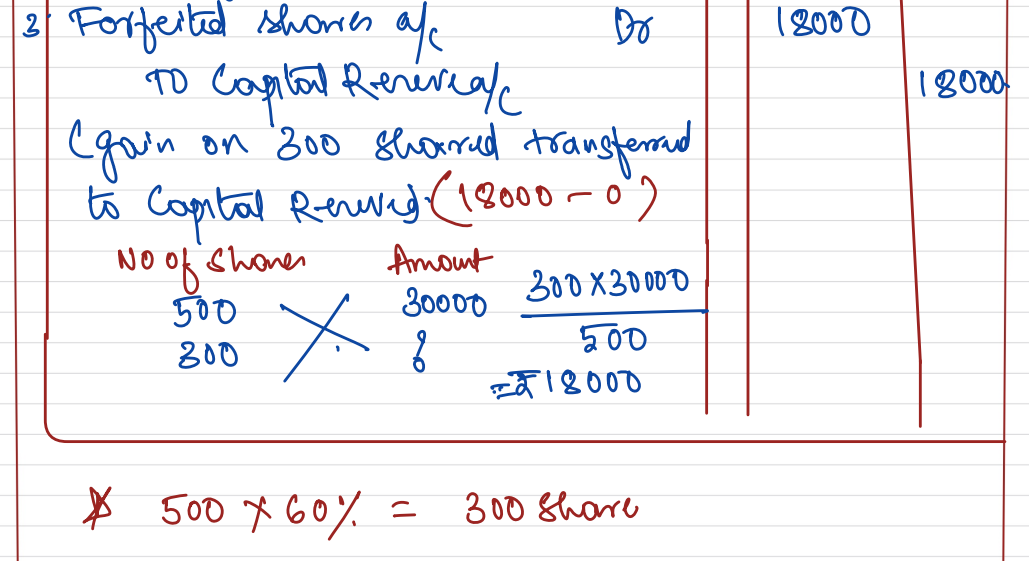 3 Forfeited shares a/c Dr 18000
To Capital Reserve a/c 18000
(gain on 300 shares transferred
to Capital Reserve) (18000 - 0)
No of shares Amount
500 30000 300 x 30000
300 ? 500
= ₹18000
* 500 x 60% = 300 share